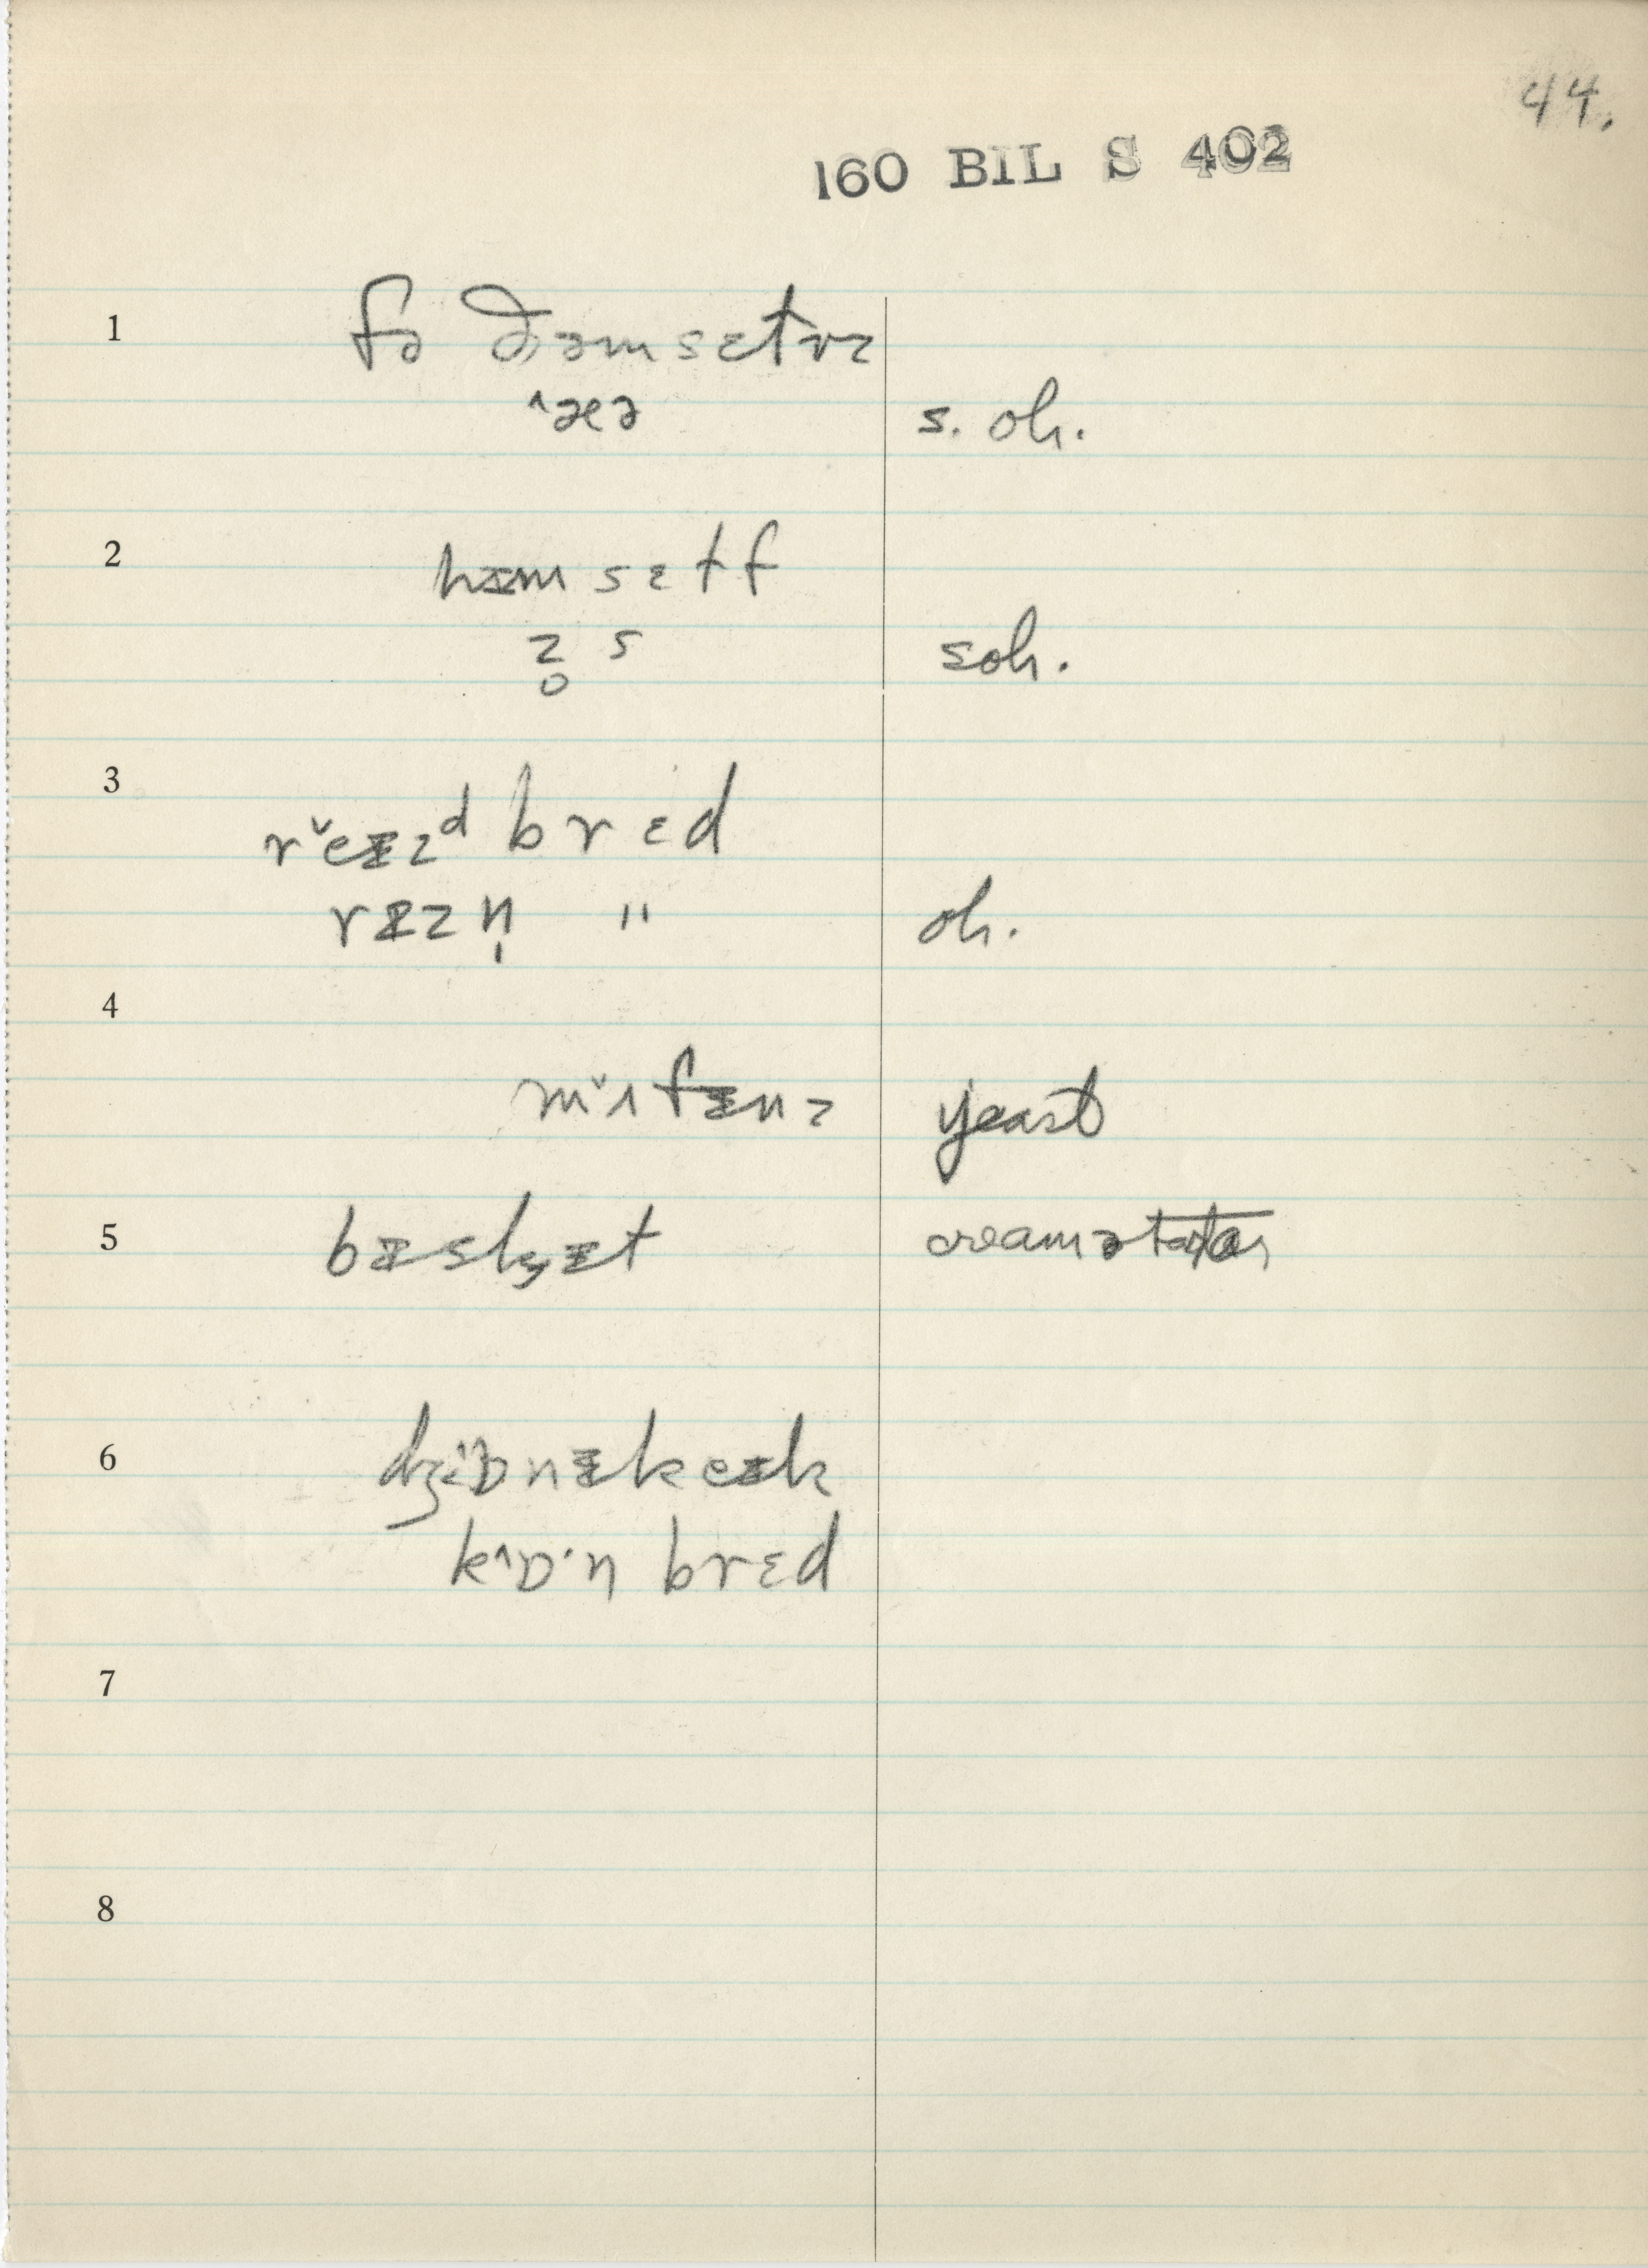 44.
160 BIL S 402
1 fə ðəmsɛtvz
^æə s. oh.
2 hɪ̵msɛtf
z̥ s soh.
3 rˇeɪ̵zᵈ brɛd
rɪ̵zn̩ " oh.
4
mˇʌfɪ̵nz yeast
5 bɪ̵skɪ̵t creamətartar
6
kˆɒ·n brɛd
7
8